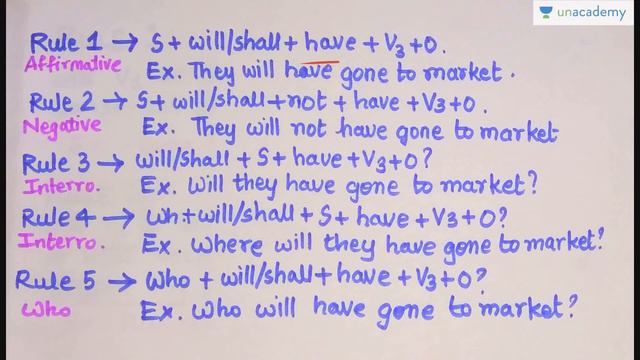 unacademy
Rule 1 → S + will/shall + have + V3 + O.
Affirmative Ex. They will have gone to market.
Rule 2 → S + will/shall + not + have + V3 + O.
Negative Ex. They will not have gone to market
Rule 3 → will/shall + S + have + V3 + O?
Interro. Ex. Will they have gone to market?
Rule 4 → Wh + will/shall + S + have + V3 + O?
Interro. Ex. Where will they have gone to market?
Rule 5 → Who + will/shall + have + V3 + O?
Who Ex. Who will have gone to market?